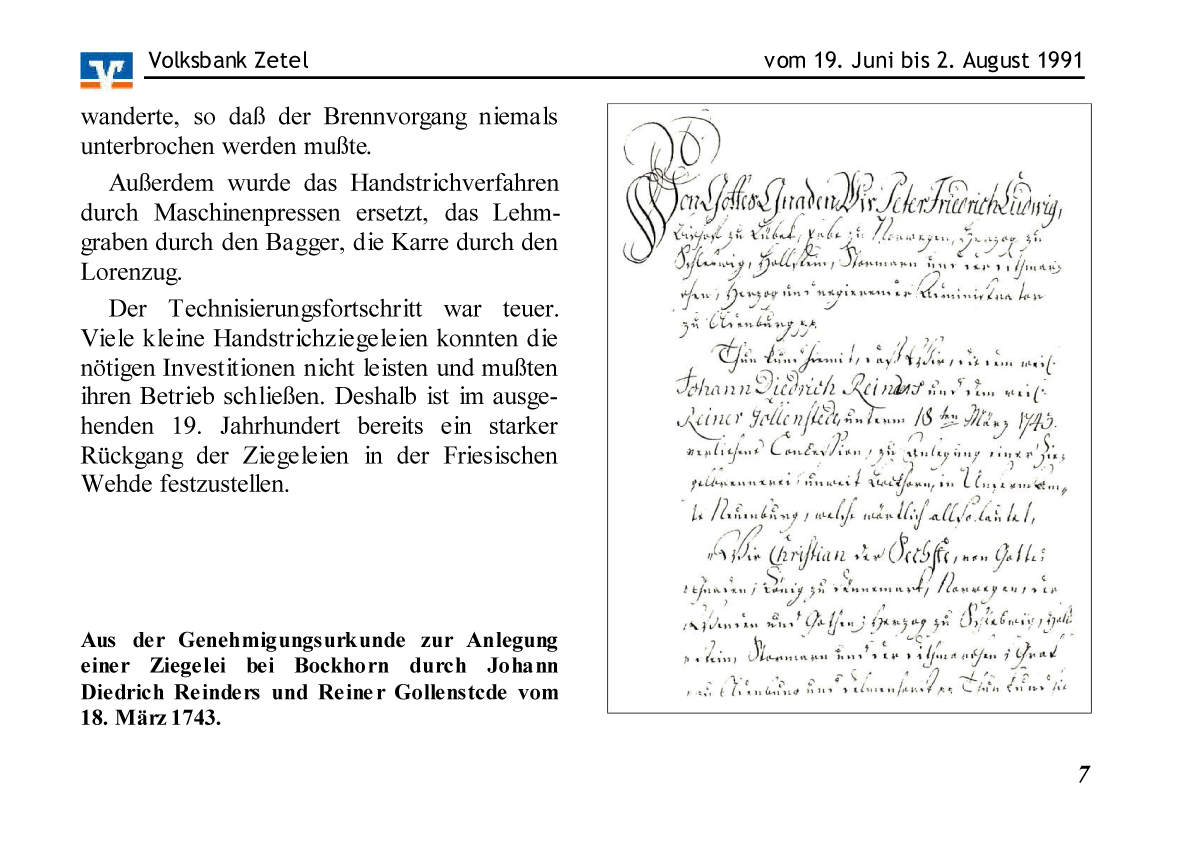 Volksbank Zetel
vom 19. Juni bis 2. August 1991
wanderte, so daß der Brennvorgang niemals
unterbrochen werden mußte.
Außerdem wurde das Handstrichverfahren
durch Maschinenpressen ersetzt, das Lehm-
graben durch den Bagger, die Karre durch den
Lorenzug.
Der Technisierungsfortschritt war teuer.
Viele kleine Handstrichziegeleien konnten die
nötigen Investitionen nicht leisten und mußten
ihren Betrieb schließen. Deshalb ist im ausge-
henden 19. Jahrhundert bereits ein starker
Rückgang der Ziegeleien in der Friesischen
Wehde festzustellen.
Aus der Genehmigungsurkunde zur Anlegung
einer Ziegelei bei Bockhorn durch Johann
Diedrich Reinders und Reiner Gollenstcde vom
18. März 1743.
Von Gottes Gnaden Wir Peter Friedrich Ludwig,
Bischof zu Lübek, Erbe zu Norwegen, Herzog zu
Schleswig, Hollstein, Stormarn und der Dithmar
schen, Herzog und regierender Administrator
zu Oldenburg
Thun kund hiermit, daß Wir, die dem weil:
Johann Diedrich Reinders und dem weil:
Reiner Gollenstede, unterm 18ten März 1743.
verliehene Concession, zu Anlegung einer Zie
gelbrennerei unweit Bockhorn, in Unserm Am
te Neuenburg, welche wörtlich also lautet,
"Wir Christian der Sechste, von Gottes
Gnaden, König zu Dännemark, Norwegen, der
Wenden und Gothen, Herzog zu Schleswig, Holl
stein, Stormarn und der Dithmarschen, Graf
zu Oldenburg und Delmenhorst Thun kund hie
7